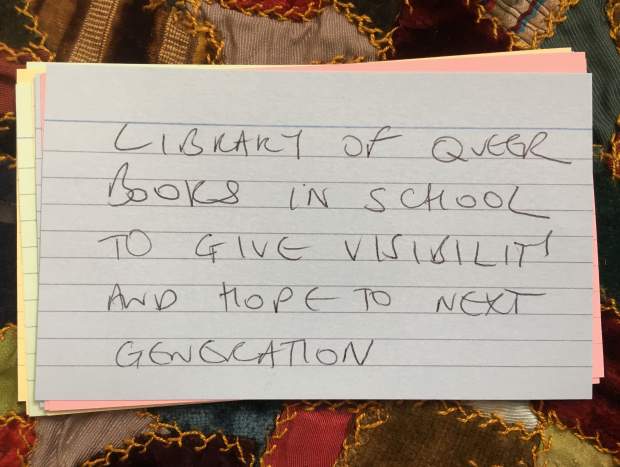 LIBRARY OF QUEER
BOOKS IN SCHOOL
TO GIVE VISIBILITY
AND HOPE TO NEXT
GENERATION